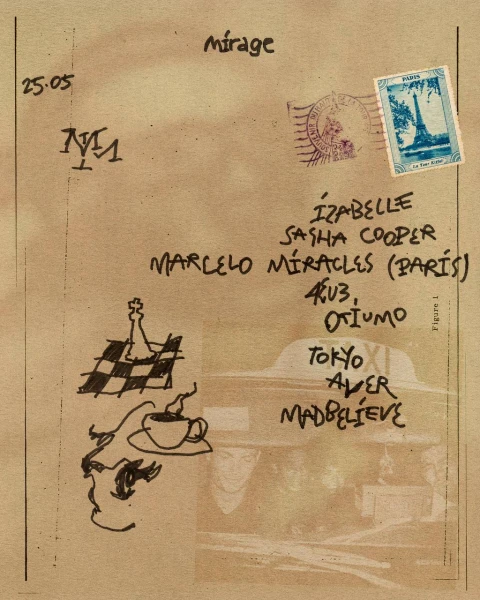 mirage
25.05
PARIS
La Tour Eiffel
IZABELLE
SASHA COOPER
MARCELO MIRACLES (PARÍS)
4EU3
OTIUMO
Figure 1
TAXI
TOKYO
AVER
MADBELIEVE